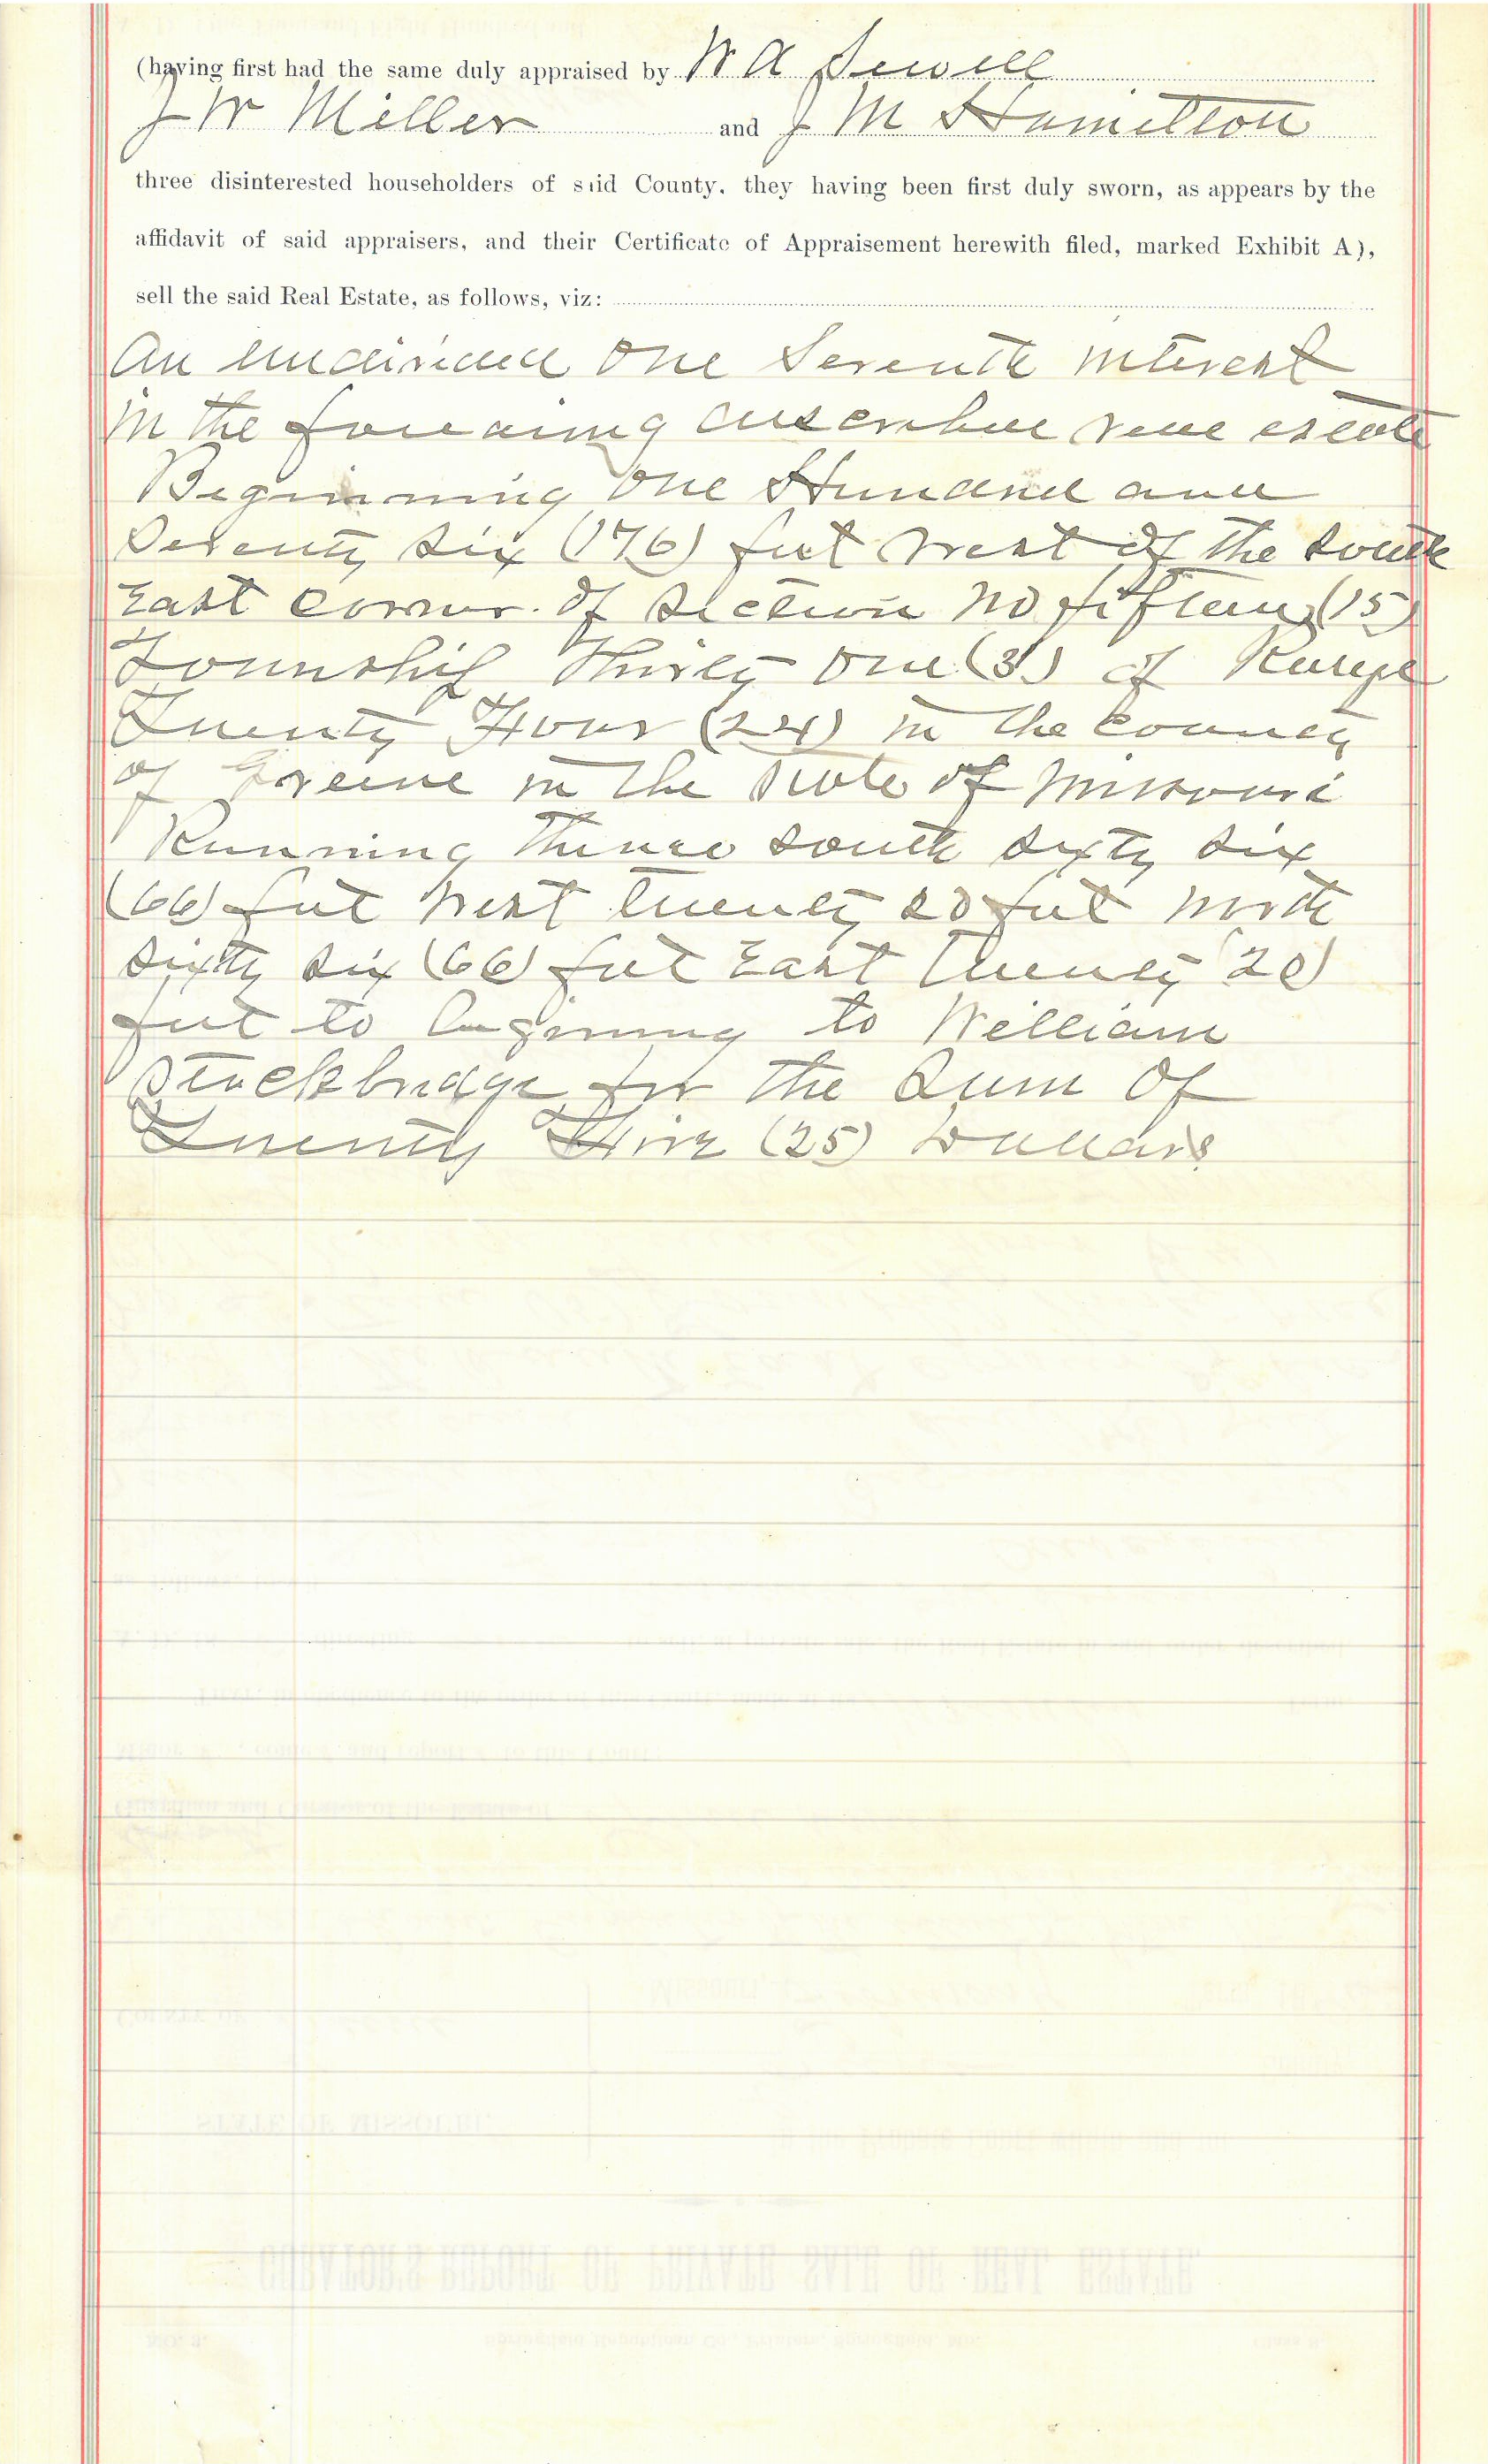 (having first had the same duly appraised by W A Sewell
J W Miller and J M Hamilton
three disinterested householders of said County, they having been first duly sworn, as appears by the
affidavit of said appraisers, and their Certificate of Appraisement herewith filed, marked Exhibit A),
sell the said Real Estate, as follows, viz:
An undivided one Seventh interest
in the following described real estate
Beginning one Hundred and
Seventy six (176) feet west of the south
East corner of section no fifteen (15)
Township Thirty one (31) of Range
Twenty Four (24) in the county
of Greene in the state of Missouri
Running thence south sixty six
(66) feet west twenty 20 feet north
sixty six (66) feet East twenty (20)
feet to beginning to William
Stockbridge for the Sum of
Twenty Five (25) Dollars
CURATOR'S REPORT OF PRIVATE SALE OF REAL ESTATE.